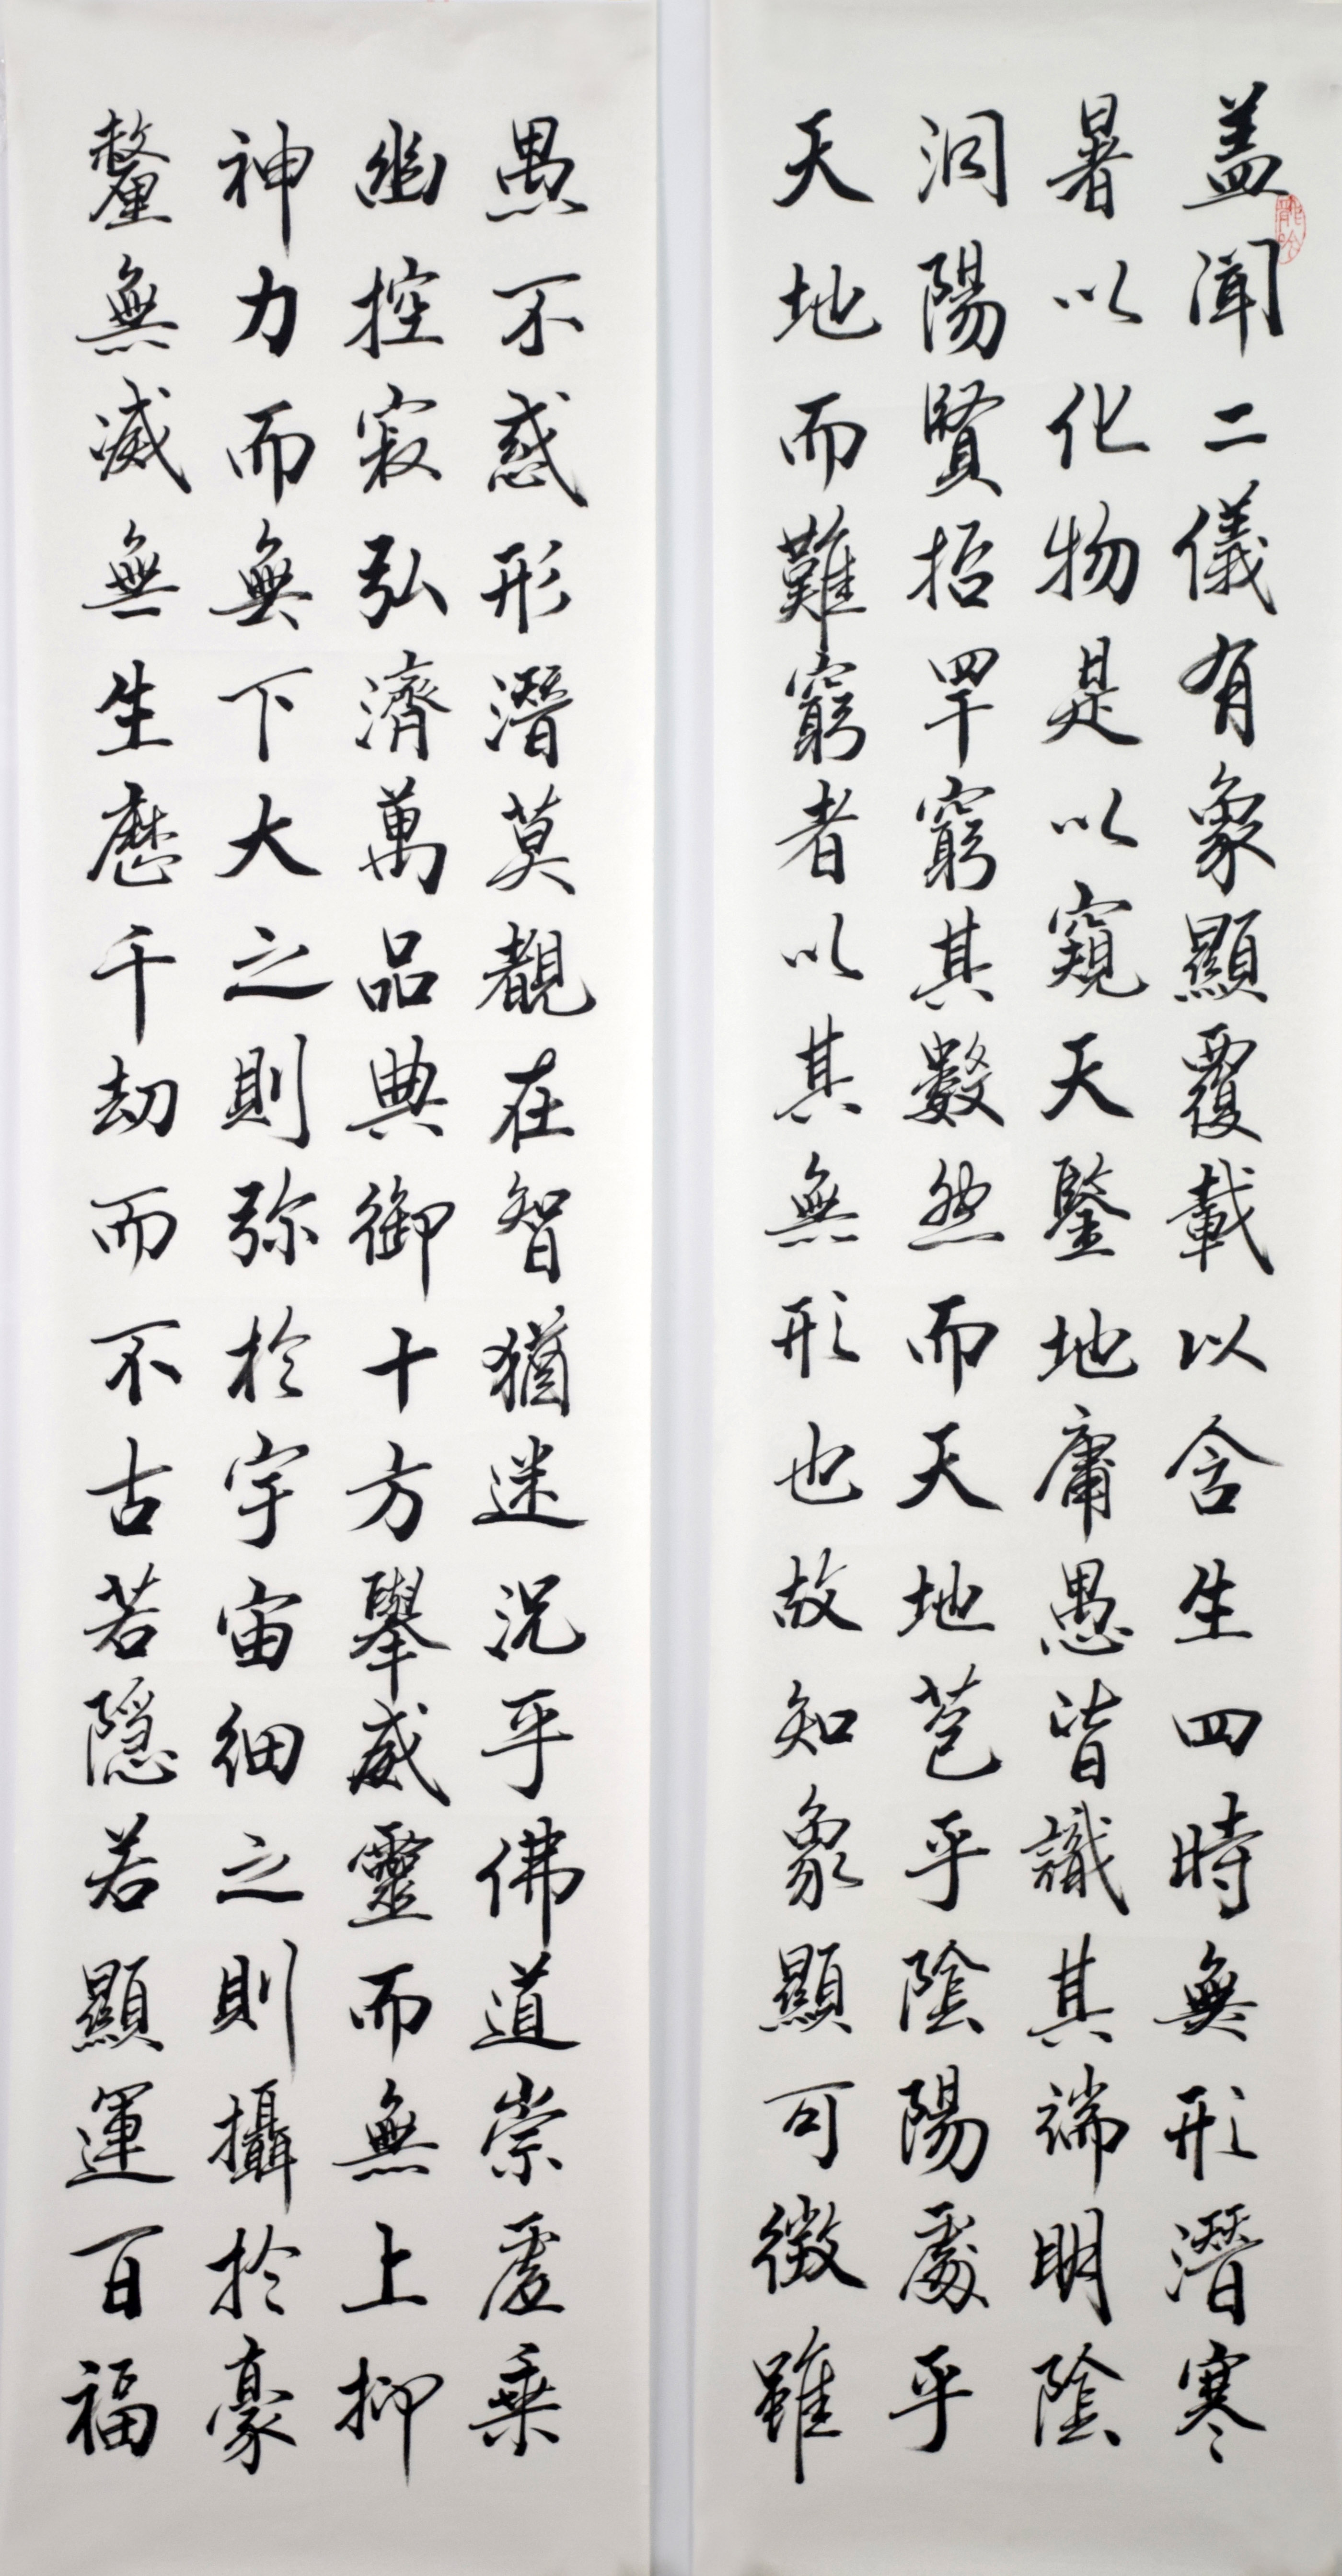 盖聞二儀有象顯覆載以含生四時無形潛寒
暑以化物是以窺天鑒地庸愚皆識其端明陰
洞陽賢哲罕窮其數然而天地苞乎陰陽處乎
天地而難窮者以其無形也故知象顯可徵雖
愚不惑形潛莫覩在智猶迷況乎佛道崇虛乘
幽控寂弘濟萬品典御十方舉威靈而無上抑
神力而無下大之則弥於宇宙細之則攝於豪
釐無滅無生歷千劫而不古若隱若顯運百福